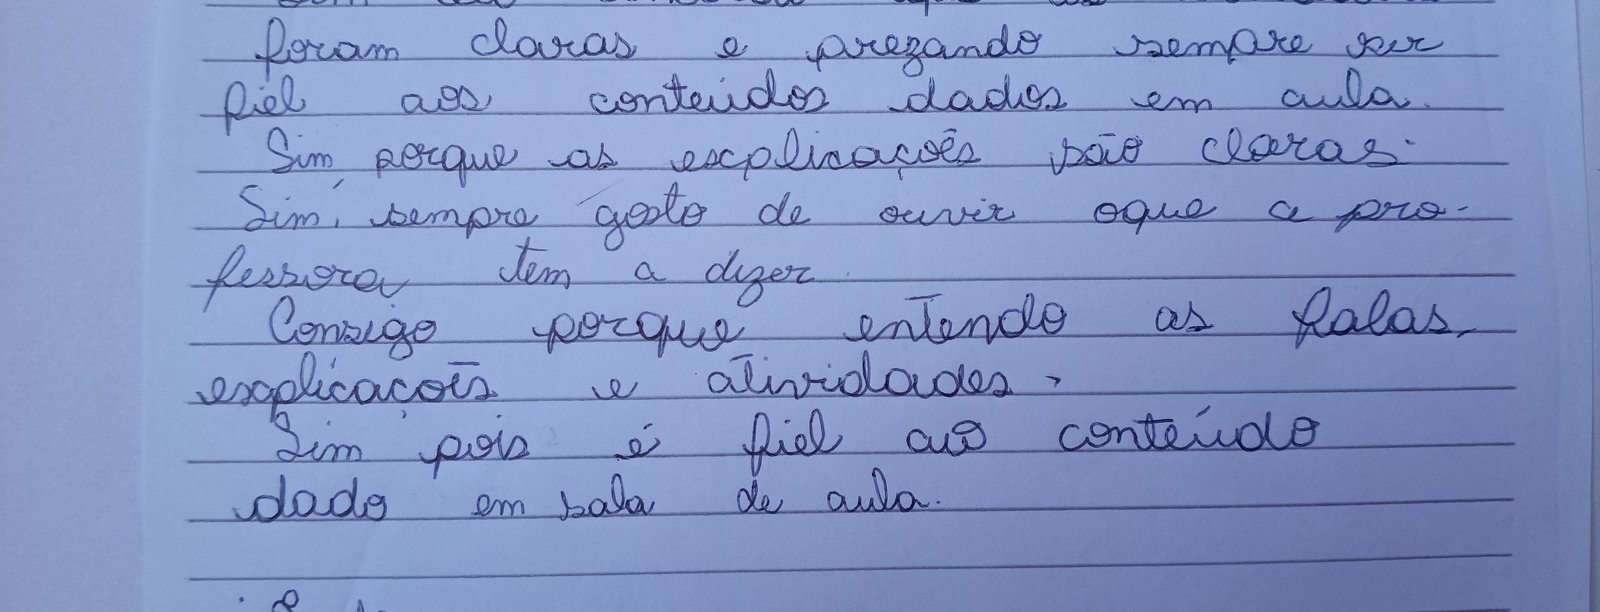 foram claras e prezando sempre ser
fiel aos conteúdos dados em aula.
Sim porque as explicações são claras.
Sim, sempre gosto de ouvir oque a pro-
fessora tem a dizer.
Consigo porque entendo as falas,
explicações e atividades.
Sim pois é fiel ao conteúdo
dado em sala de aula.